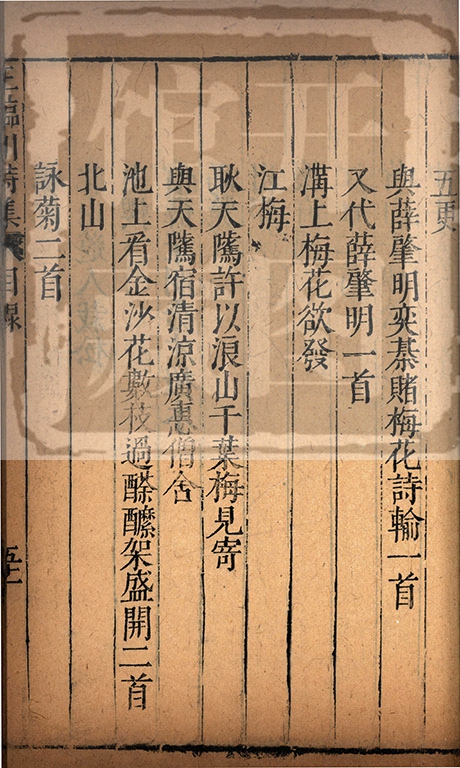 五更
與薛肇明奕棊賭梅花詩輸一首
又代薛肇明一首
溝上梅花欲發
江梅
耿天騭許以浪山千葉梅見寄
與天騭宿清涼廣惠僧舍
池上看金沙花數枝過酴醾架盛開二首
北山
詠菊二首
王臨川詩集 目錄